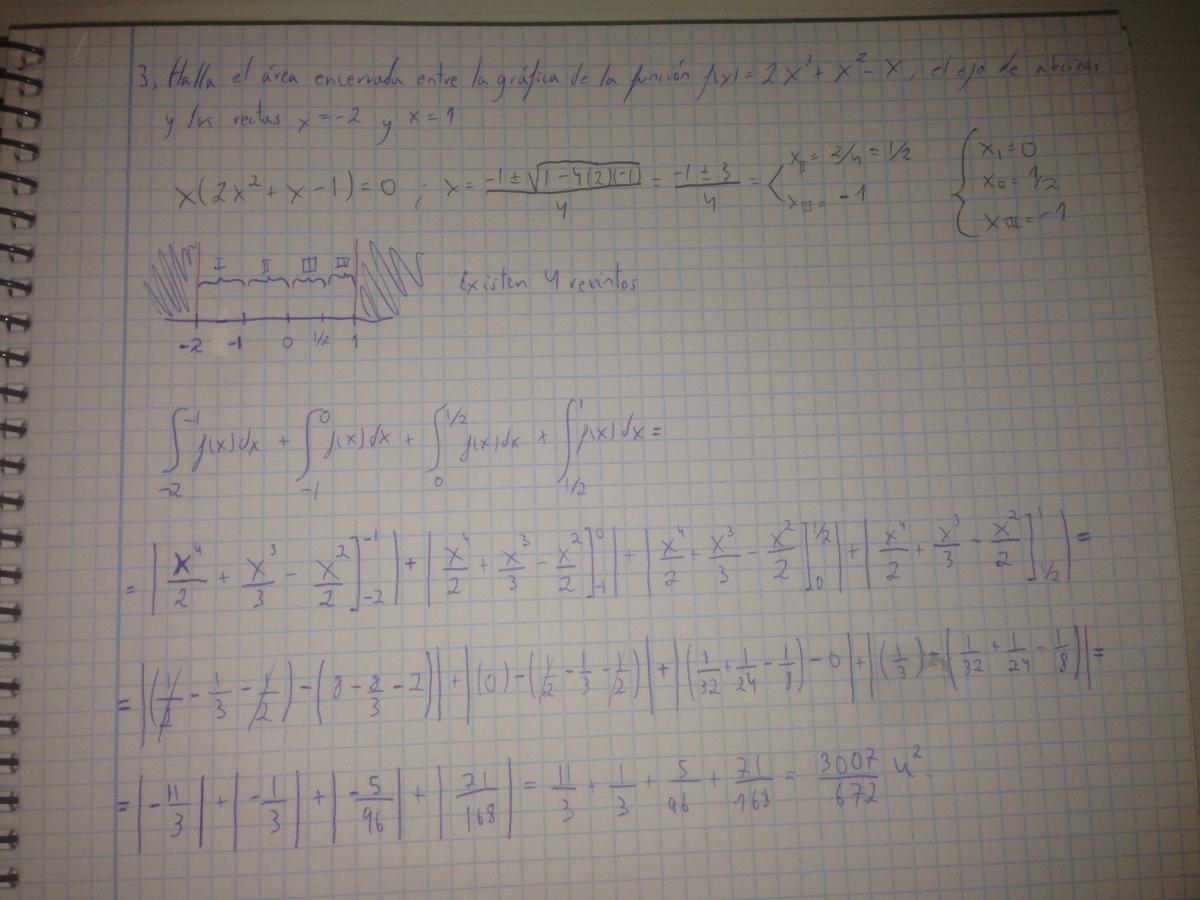 3, Halla el área encerrada entre la gráfica de la función f(x) = 2x³ + x² - x, el eje de abcisas
y las rectas x = -2 y x = 1
x(2x² + x - 1) = 0 ; x = (-1 ± √(1 - 4(2)(-1)))/4 = (-1 ± 3)/4 = < x_II = 2/4 = 1/2 x_III = -1 { x_I = 0 x_II = 1/2 x_III = -1
I II III IV Existen 4 recintos
-2 -1 0 1/2 1
∫_{-2}^{-1} f(x)dx + ∫_{-1}^{0} f(x)dx + ∫_{0}^{1/2} f(x)dx + ∫_{1/2}^{1} f(x)dx =
= |x⁴/2 + x³/3 - x²/2]_{-2}^{-1}| + |x⁴/2 + x³/3 - x²/2]_{-1}^{0}| + |x⁴/2 + x³/3 - x²/2]_{0}^{1/2}| + |x⁴/2 + x³/3 - x²/2]_{1/2}^{1}| =
= |(1/2 - 1/3 - 1/2) - (8 - 8/3 - 2)| + |(0) - (1/2 - 1/3 - 1/2)| + |(1/32 + 1/24 - 1/8) - 0| + |(1/3) - (1/32 + 1/24 - 1/8)| =
= |-11/3| + |-1/3| + |-5/96| + |71/168| = 11/3 + 1/3 + 5/96 + 71/168 = 3007/672 u².